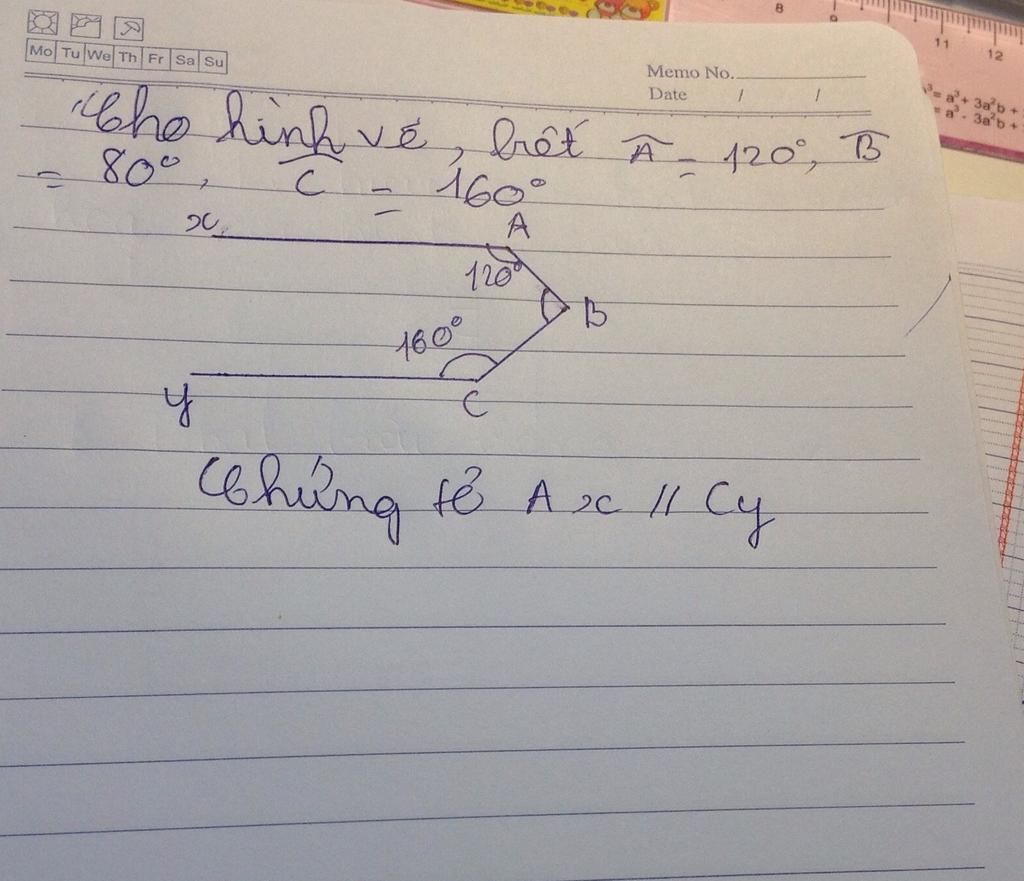 Mo Tu We Th Fr Sa Su
Memo No.
Date / /
Cho hình vẽ, biết A = 120°, B
= 80°, C = 160°
x A
120°
B
160°
y C
Chứng tỏ Ax // Cy
8 9 11 12
³= a³ + 3a²b +
= a³ - 3a²b +